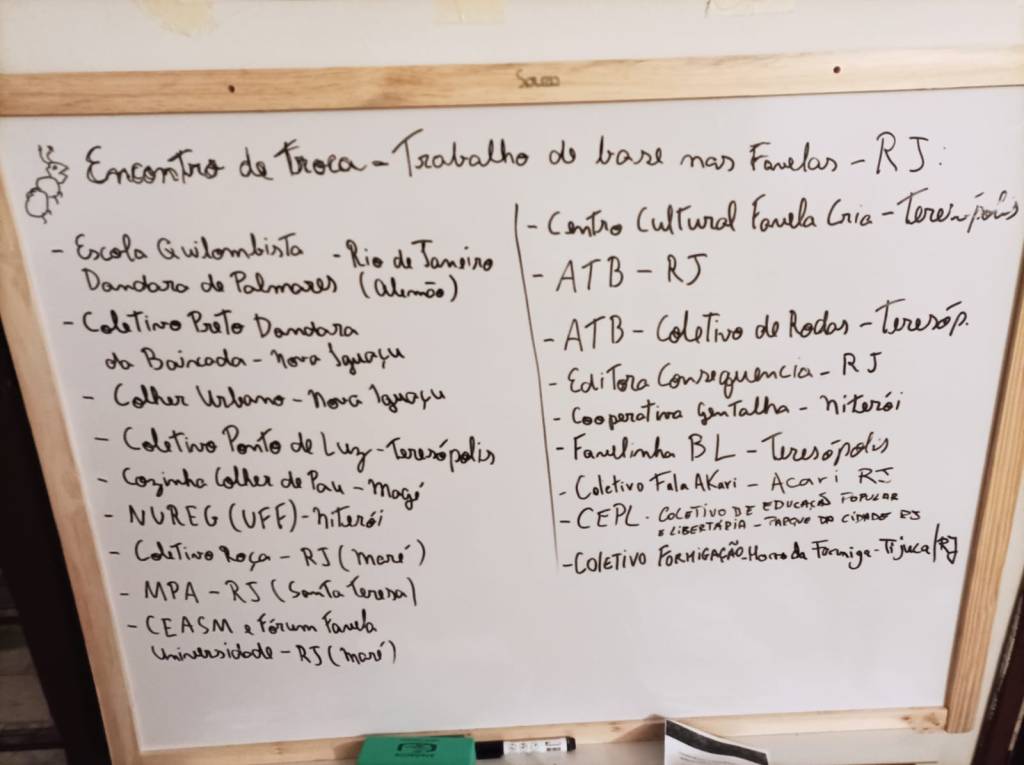 Souza
Encontro de troca - Trabalho de base nas Favelas - RJ:
- Escola Quilombista - Rio de Janeiro
Dandara de Palmares (Alemão)
- Coletivo Preto Dandara
da Baixada - Nova Iguaçu
- Colher Urbano - Nova Iguaçu
- Coletivo Ponto de Luz - Teresópolis
- Cozinha Colher de Pau - Magé
- NUREG (UFF) - Niterói
- Coletivo Roça - RJ (Maré)
- MPA - RJ (Santa Teresa)
- CEASM e Fórum Favela
Universidade - RJ (Maré)
- Centro Cultural Favela Cria - Teresópolis
- ATB - RJ
- ATB - Coletivo de Rodas - Teresóp.
- Editora Consequencia - RJ
- Cooperativa Gentalha - Niterói
- Favelinha BL - Teresópolis
- Coletivo Fala AKari - Acari RJ
- CEPL - COLETIVO DE EDUCAÇÃO POPULAR
E LIBERTÁRIA - PARQUE DA CIDADE RJ
- COLETIVO FORMIGAÇÃO - Morro da Formiga - Tijuca/RJ